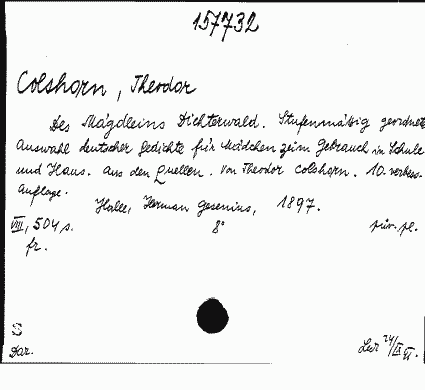 157732
Colshorn, Theodor
Des Mägdleins Dichterwald. Stufenmäßig geordnete
Auswahl deutscher Gedichte für Mädchen zum Gebrauch in Schule
und Haus. Aus den Quellen. Von Theodor Colshorn. 10. verbess.
Auflage.
Halle, Herman Gesenius, 1897.
VIII, 504 s. 8° püv. pl.
fr.
S
Dar. 24/IX